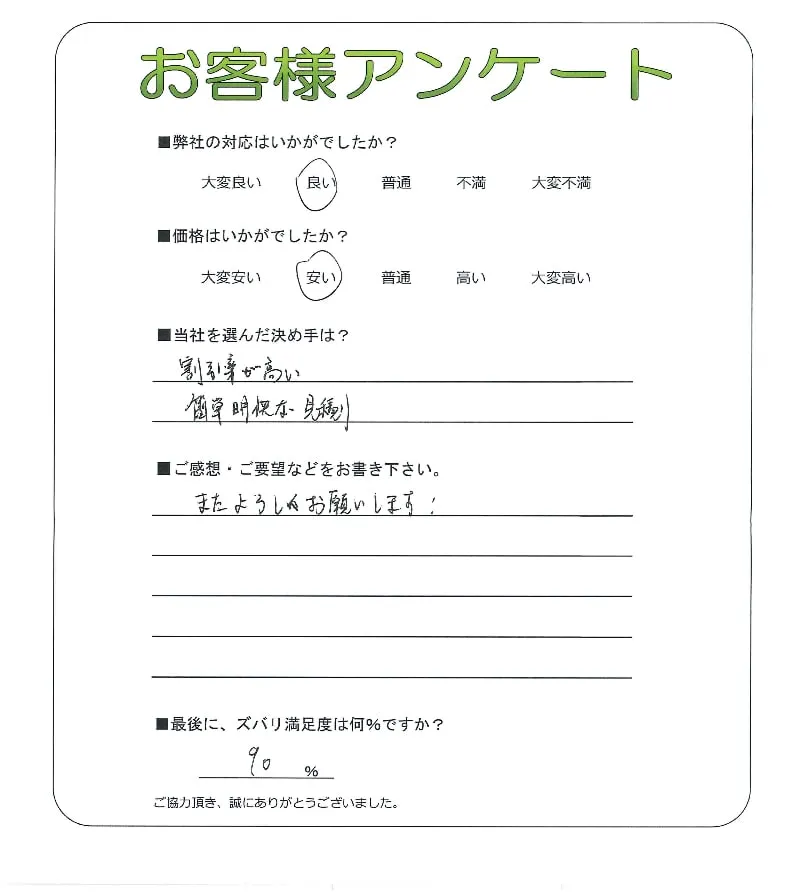 お客様アンケート
■弊社の対応はいかがでしたか？
大変良い 良い 普通 不満 大変不満
■価格はいかがでしたか？
大変安い 安い 普通 高い 大変高い
■当社を選んだ決め手は？
割引率が高い
簡単明快な見積り
■ご感想・ご要望などをお書き下さい。
またよろしくお願いします！
■最後に、ズバリ満足度は何％ですか？
90 %
ご協力頂き、誠にありがとうございました。